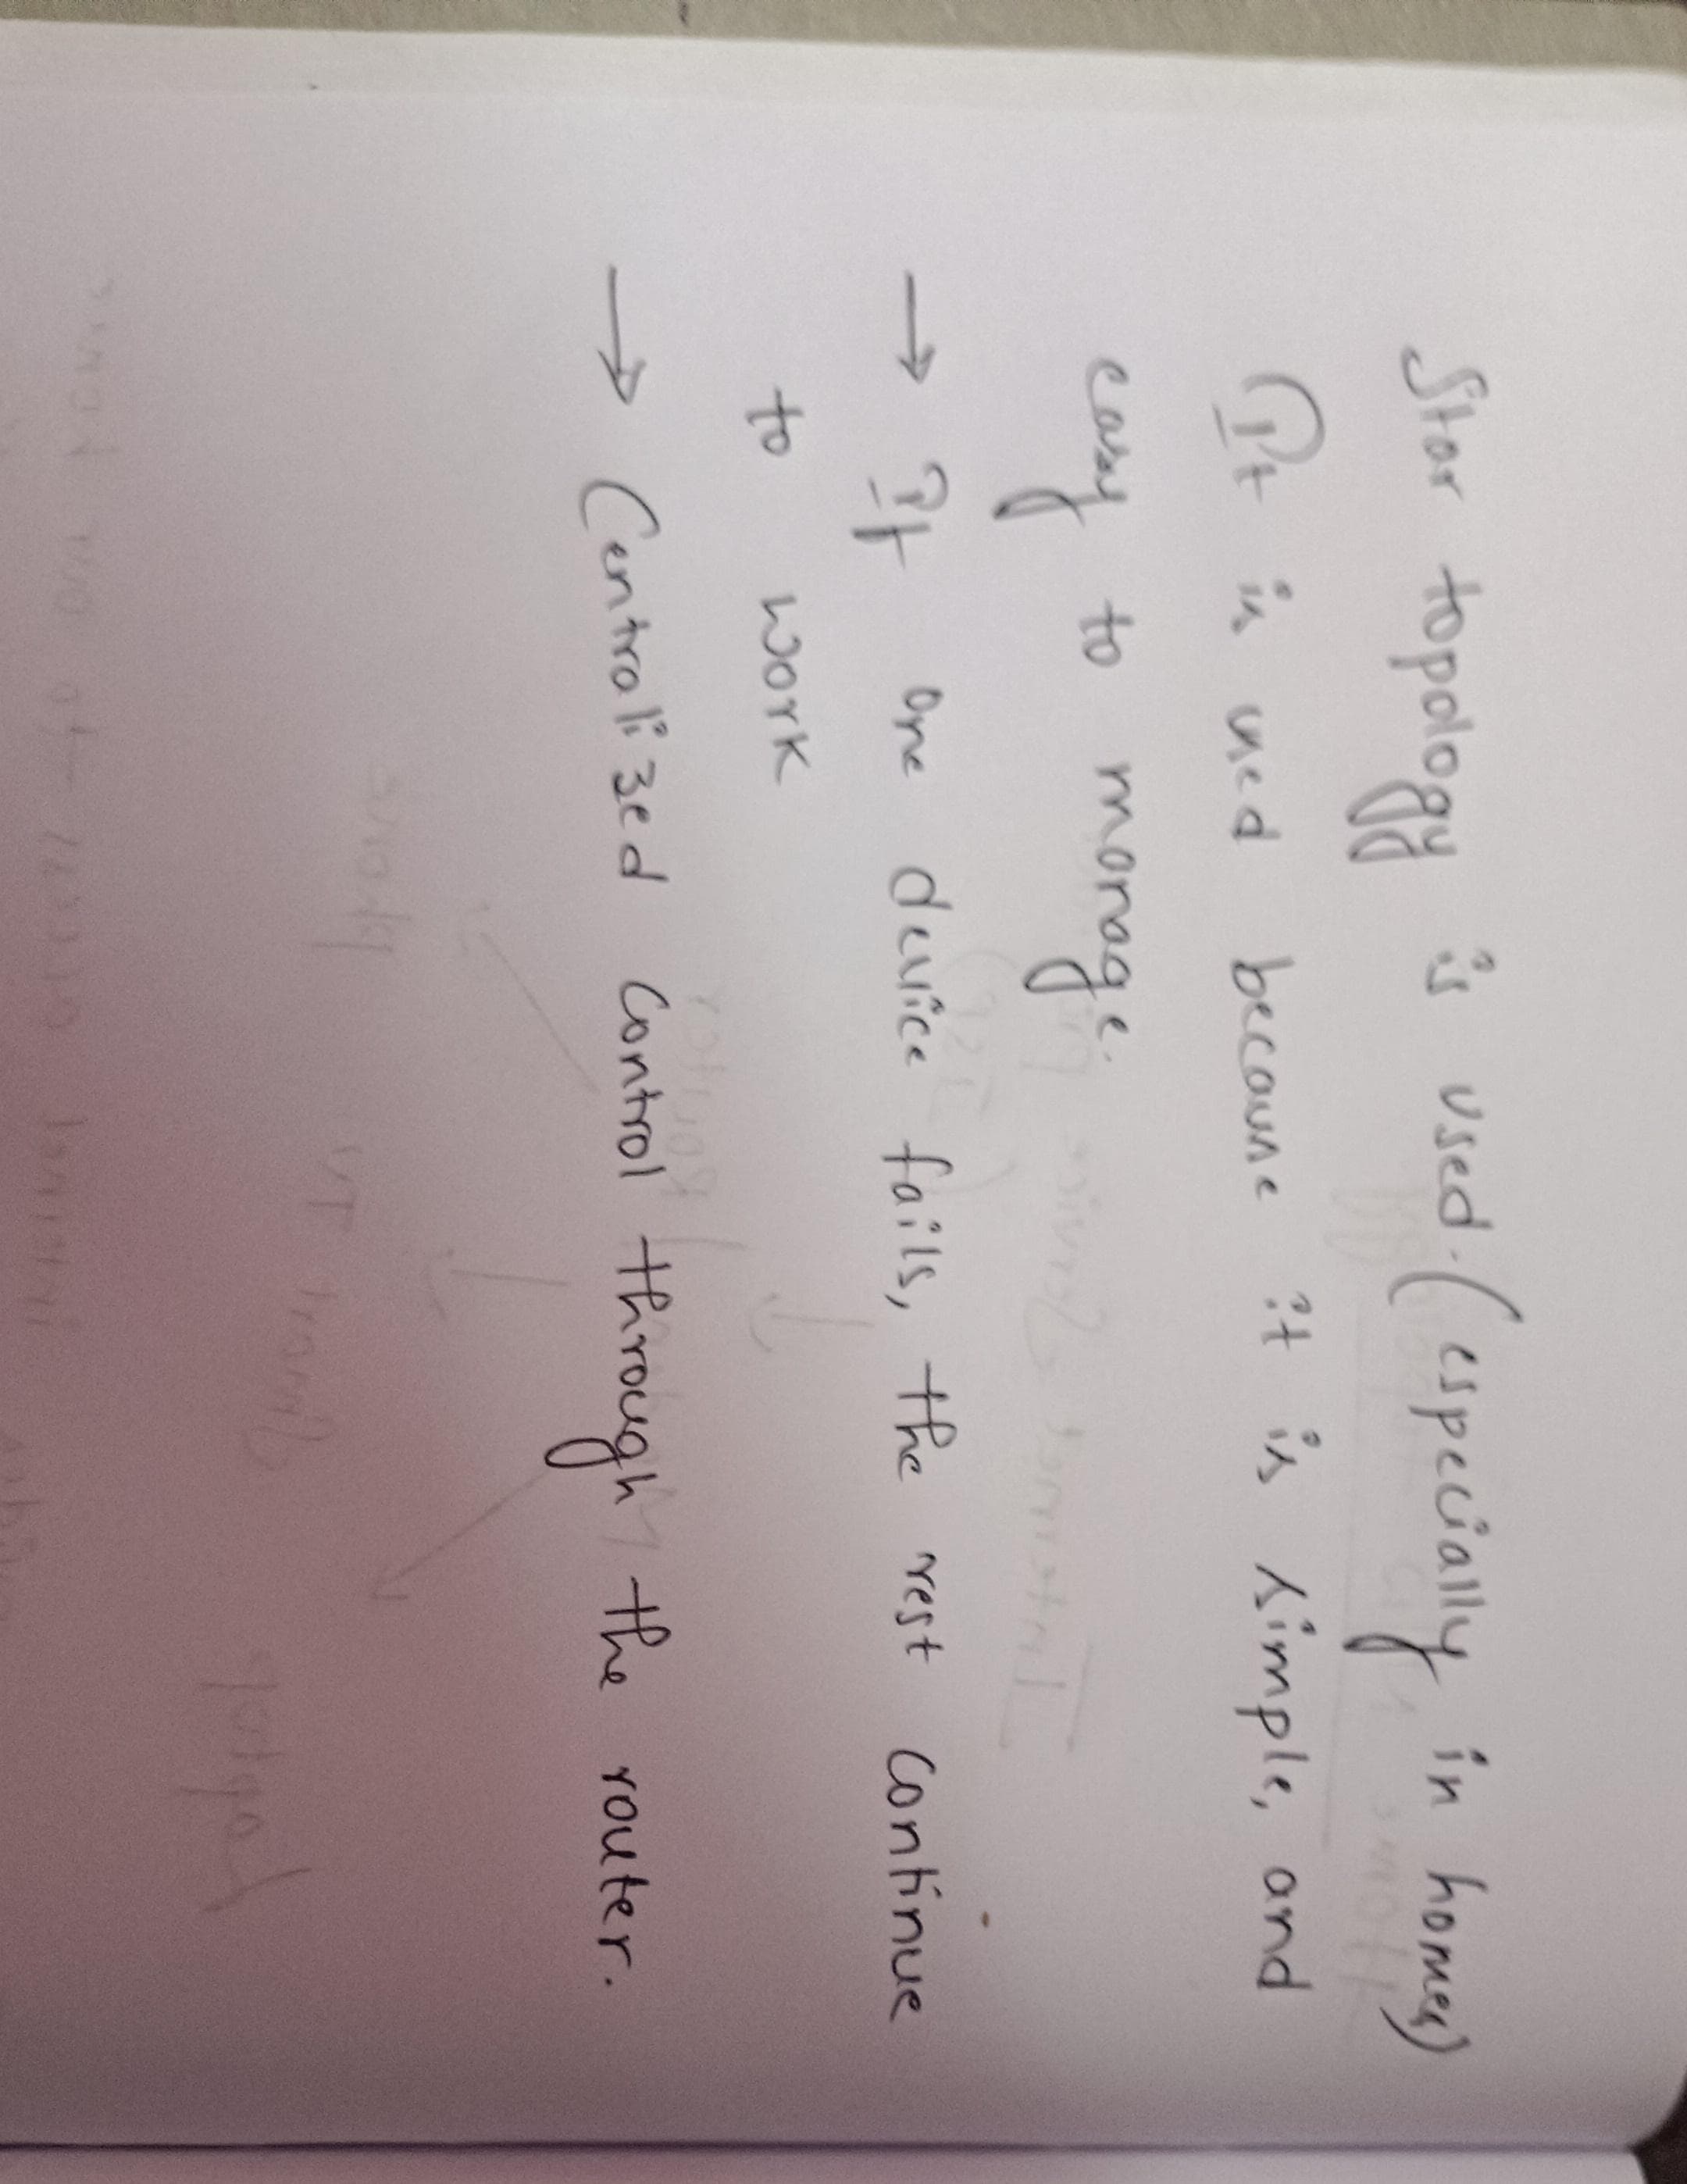 Star topology is used. (especially in homes)
It is used because it is simple, and
easy to manage.
→ If one device fails, the rest continue
to work
→ Centralized control through the router.